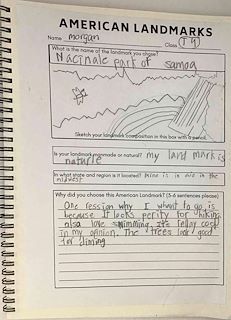 AMERICAN LANDMARKS
Name morgan
Class T4
What is the name of the landmark you chose?
Nacinale part of samoa
Sketch your landmark composition in this box with a pencil.
Is your landmark manmade or natural? my land mark is
naturle
In what state and region is it located? Mine is is in the
midwest
Why did you choose this American Landmark? (5-6 sentences please)
One ression why I whant to go is
because It looks perity for hiking
alsa love swimming. its rellay cool
in my opinion. The trees look good
for climing